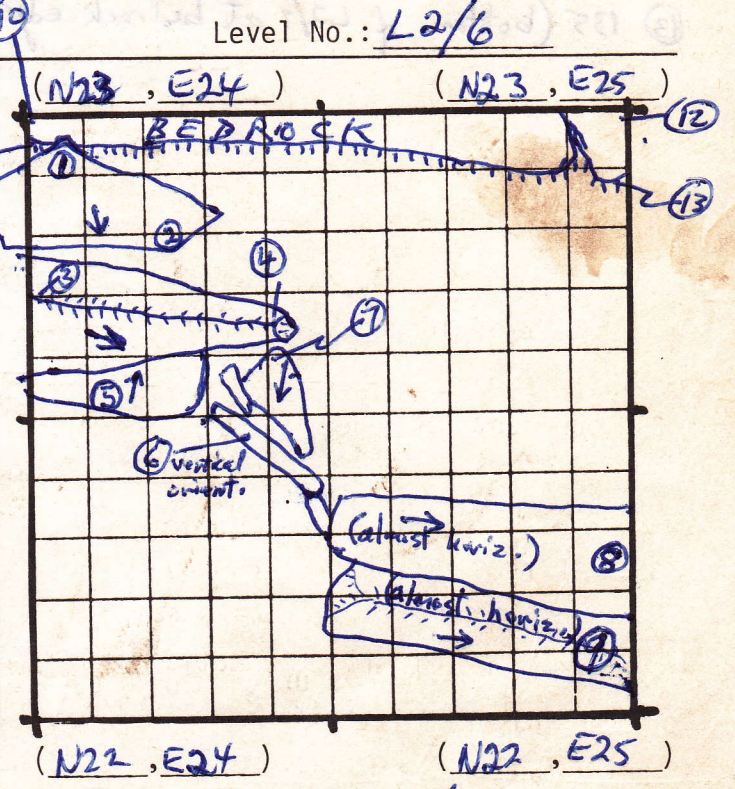 Level No.: L2/6
10
(N23, E24) (N23, E25)
12
BEDROCK
1
13
2
3
4
7
5
6 vertical
orient.
(almost horiz.)
8
(almost horiz.)
9
(N22, E24) (N22, E25)